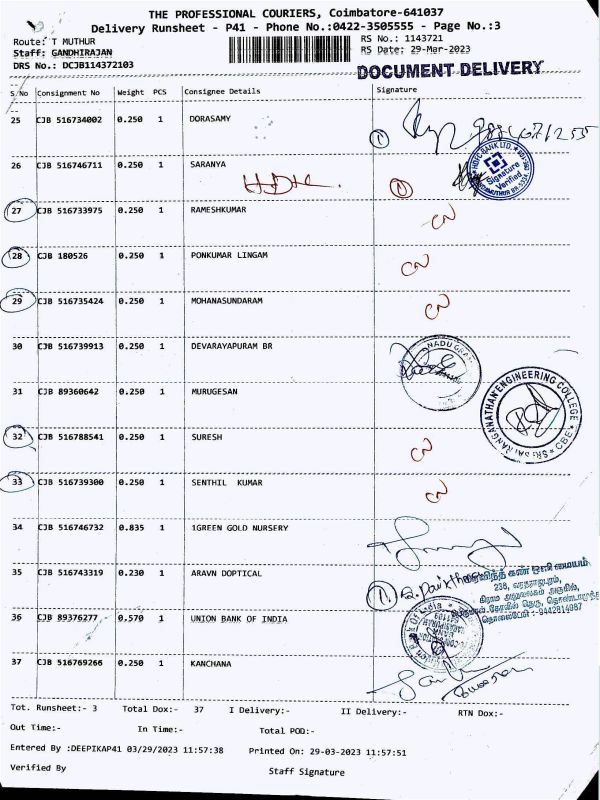 THE PROFESSIONAL COURIERS, Coimbatore-641037
Delivery Runsheet - P41 - Phone No.:0422-3505555 - Page No.:3
Route: T MUTHUR RS No.: 1143721
Staff: GANDHIRAJAN RS Date: 29-Mar-2023
DRS No.: DCJB114372103
DOCUMENT DELIVERY
S/No Consignment No Weight PCS Consignee Details Signature
25 CJB 516734002 0.250 1 DORASAMY
1
26 CJB 516746711 0.250 1 SARANYA
HDFC BANK LTD.
Signature Verified
1
27 CJB 516733975 0.250 1 RAMESHKUMAR CN
28 CJB 180526 0.250 1 PONKUMAR LINGAM CN
29 CJB 516735424 0.250 1 MOHANASUNDARAM CN
30 CJB 516739913 0.250 1 DEVARAYAPURAM BR
31 CJB 89360642 0.250 1 MURUGESAN
SRI RANGANATHAN ENGINEERING COLLEGE CBE
32 CJB 516788541 0.250 1 SURESH CN
33 CJB 516739300 0.250 1 SENTHIL KUMAR CN
34 CJB 516746732 0.835 1 1GREEN GOLD NURSERY
35 CJB 516743319 0.230 1 ARAVN DOPTICAL
1
கண் ஒளி மையம்
238,
கிராம அலுவலகம் அருகில்,
தொலைபேசி :- 9442814987
36 CJB 89376277 0.570 1 UNION BANK OF INDIA
37 CJB 516769266 0.250 1 KANCHANA
Tot. Runsheet:- 3 Total Dox:- 37 I Delivery:- II Delivery:- RTN Dox:-
Out Time:- In Time:- Total POD:-
Entered By :DEEPIKAP41 03/29/2023 11:57:38 Printed On: 29-03-2023 11:57:51
Verified By Staff Signature